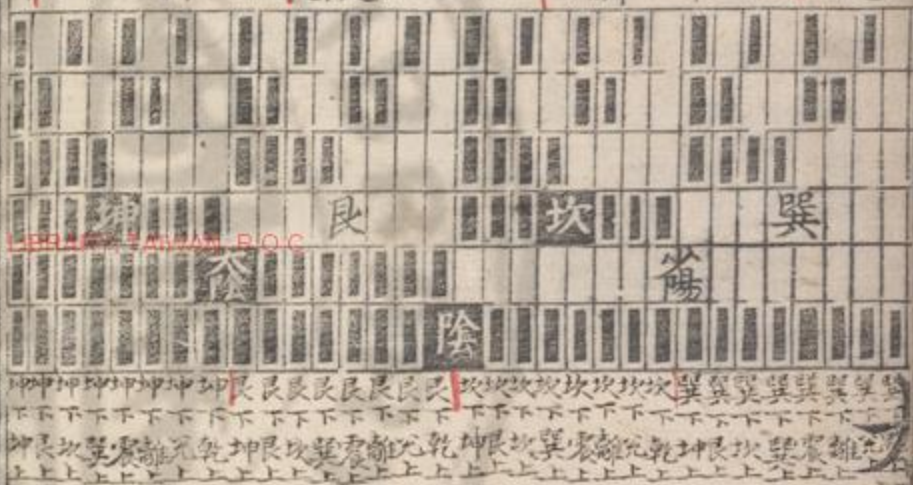 坤 艮 坎 巽
LIBRARY, TAIWAN, R.O.C
太陰 少陽
陰
坤坤坤坤坤坤坤坤艮艮艮艮艮艮艮艮坎坎坎坎坎坎坎坎巽巽巽巽巽巽巽巽
下下下下下下下下下下下下下下下下下下下下下下下下下下下下下下下
坤艮坎巽震離兌乾坤艮坎巽震離兌乾坤艮坎巽震離兌乾坤艮坎巽震離兌
上上上上上上上上上上上上上上上上上上上上上上上上上上上上上上上